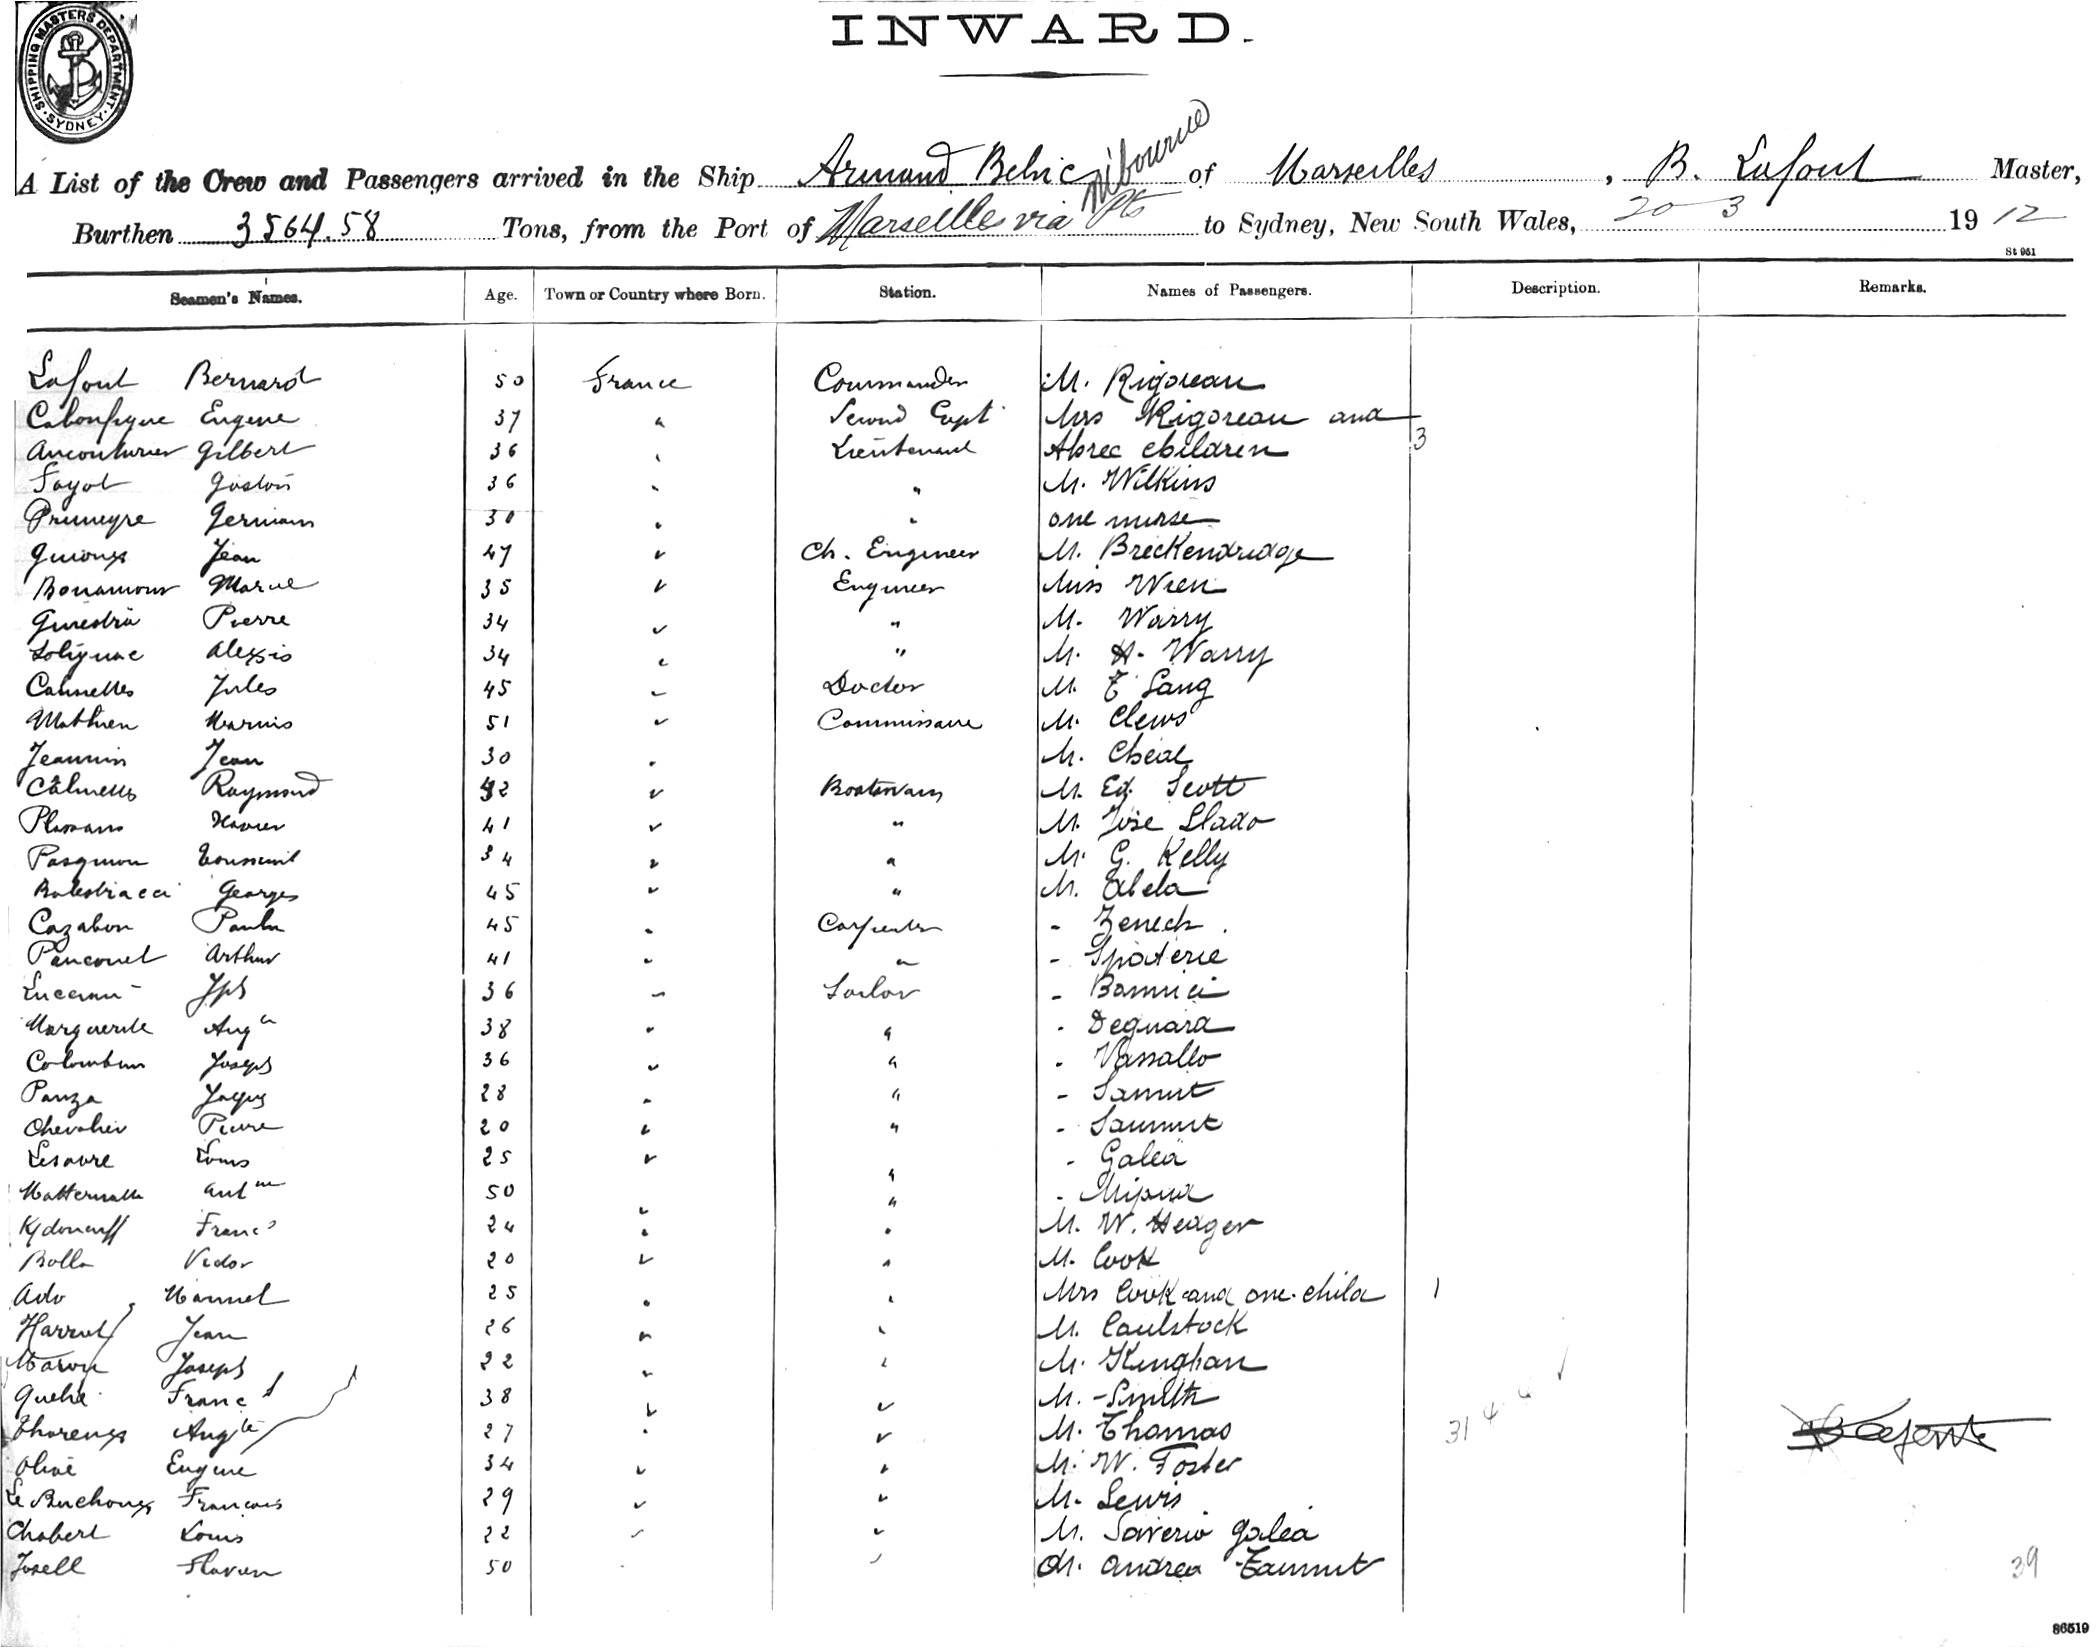 SHIPPING MASTERS DEPARTMENT. SYDNEY.
INWARD.
A List of the Crew and Passengers arrived in the Ship Armand Behic of Marseilles, B. Lafont Master,
Burthen 3564.58 Tons, from the Port of Marseilles via Pts Melbourne to Sydney, New South Wales, 20 3 1912
St 951
Seamen's Names. Age. Town or Country where Born. Station. Names of Passengers. Description. Remarks.
Lafont Bernard 50 France Commander M. Rigoreau
Eugene 37 " Second Capt Mrs Rigoreau and
Gilbert 36 " Lieutenant three children 3
Fayol Gaston 36 " " M. Wilkins
Pruneyre Germain 30 " " one nurse
Jean 47 " Ch. Engineer M. Breckendridge
Bonamour Marcel 35 " Engineer Miss Wren
Pierre 34 " " M. Warry
Solignac Alexis 34 " " M. H. Warry
Jules 45 " Doctor M. E Lang
Mathieu Marius 51 " Commissaire M. Clews
Jeannin Jean 30 " M. Cheal
Calmettes Raymond 42 " Boatswain M. Ed. Scott
Xavier 41 " " M. Jose Llado
Toussaint 34 " " M. G. Kelly
Balestracci Georges 45 " " M. Abela
Cazabon Paulin 45 " Carpenter - Zenech
Arthur 41 " " - Spaterie
Jph 36 " Sailor - Bonnici
Marguerite 38 " " - Deguara
Colomban Joseph 36 " " - Vassallo
Panza 28 " " - Samut
Chevalier Pierre 20 " " - Sammut
Louis 25 " " - Galea
50 " " - Mifsud
24 " " M. W. Hedger
Bolla Victor 20 " " M. Cook
25 " " Mrs Cook and one child 1
Jean 26 " " M. Caulstock
Joseph 22 " " M. Kinghan
38 " " M. Smith
27 " " M. Thomas 31 4 4
Olive Eugene 34 " " M. W. Foster
Francois 29 " " M. Lewis
Chabert Louis 22 " " M. Saverio Galea
Flavien 50 " " M. Andrea Tammut
39
86519